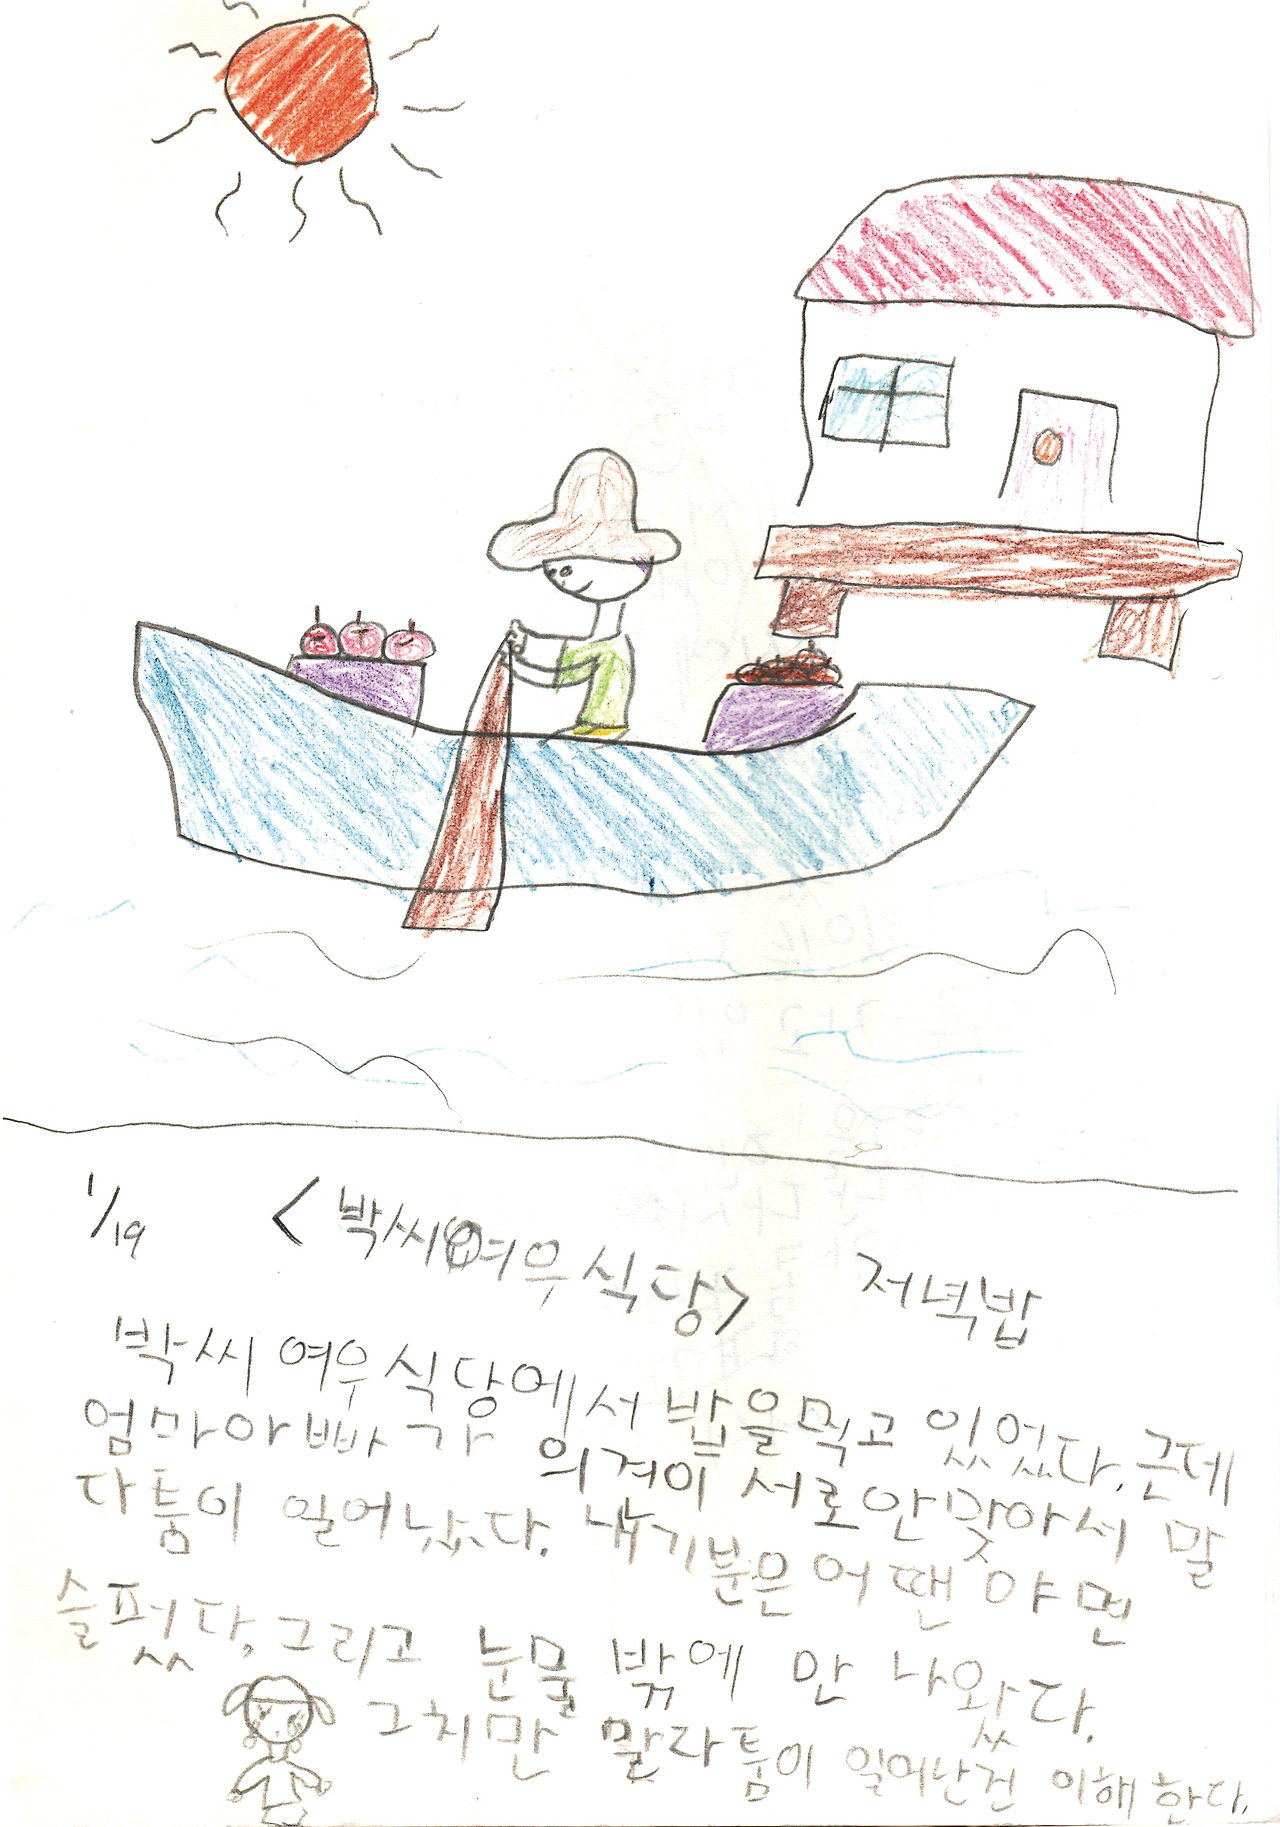 1/19 <박씨여우식당> 저녁밥
박씨 여우식당에서 밥을먹고 있었다. 근데
엄마아빠가 의겨이 서로안맞아서 말
다툼이 일어났다. 내기분은 어땐야면
슬펐다, 그리고 눈물 밖에 안 나왔다.
그치만 말라툼이 일어난건 이해한다.